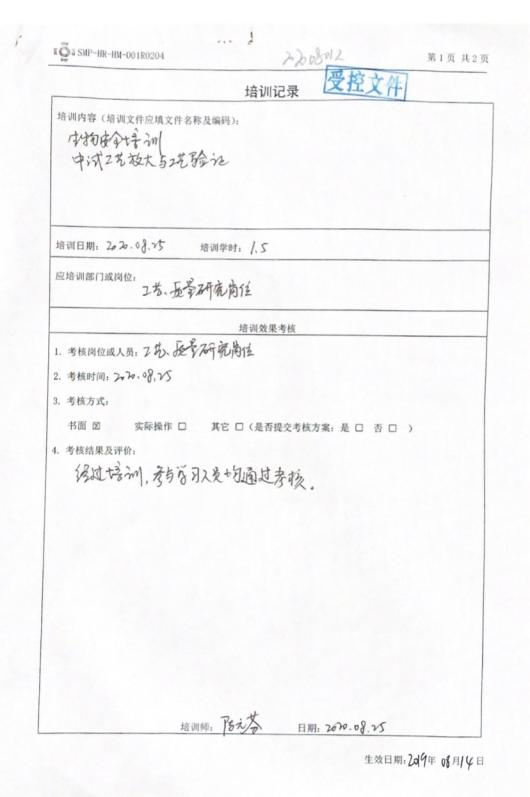 SMP-HR-HM-001R0204
2208012
第1页 共2页
受控文件
培训记录
培训内容（培训文件应填文件名称及编码）：
生物安全培训
中试工艺放大与工艺验证
培训日期：2020.08.25 培训学时：1.5
应培训部门或岗位：
工艺、质量研究岗位
培训效果考核
1. 考核岗位或人员：工艺、质量研究岗位
2. 考核时间：2020.08.25
3. 考核方式：
书面 ☒ 实际操作 □ 其它 □（是否提交考核方案：是 □ 否 □ ）
4. 考核结果及评价：
经过培训，参与学习人员均通过考核。
培训师：陈元芬 日期：2020.08.25
生效日期：2019年 08月14日